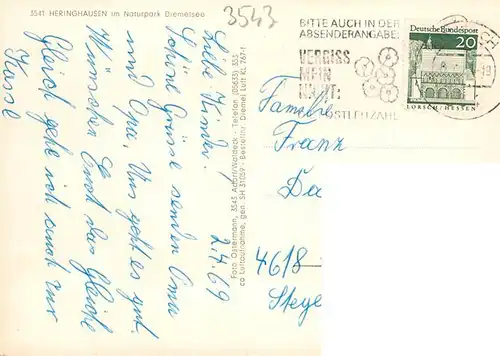 3541 HERINGHAUSEN im Naturpark Diemelsee
3543
2.4.69
Liebe Kinder.
Schöne Grüsse senden Oma
und Opa, Uns geht es gut.
Wünschen Euch das Gleiche
Gleich gehe ich auch zur
Kasse
Foto Ostermann, 3543 Adorf/Waldeck - Telefon (05633) 353
ca Luftaufnahme, gen. SH 31059 - Bestellnr. Diemel Luft KL 767-1
BITTE AUCH IN DER
ABSENDERANGABE:
VERGISS
MEIN
NICHT:
POSTLEITZAHL
Deutsche Bundespost
20
LORSCH/HESSEN
Familie
Franz
Da
4618
Stege